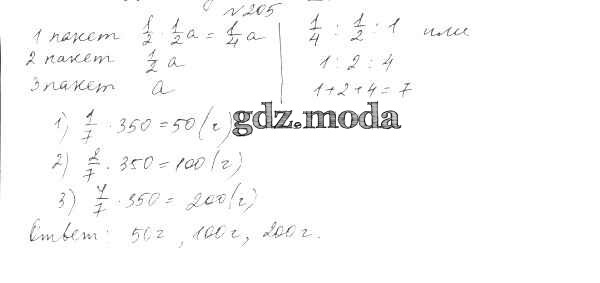 №205
1 пакет 1/2 · 1/2 a = 1/4 a
2 пакет 1/2 a
3 пакет a
1/4 : 1/2 : 1 или
1 : 2 : 4
1+2+4=7
1) 1/7 · 350 = 50 (г)
gdz.moda
2) 2/7 · 350 = 100 (г)
3) 4/7 · 350 = 200 (г)
Ответ: 50г, 100г, 200г.